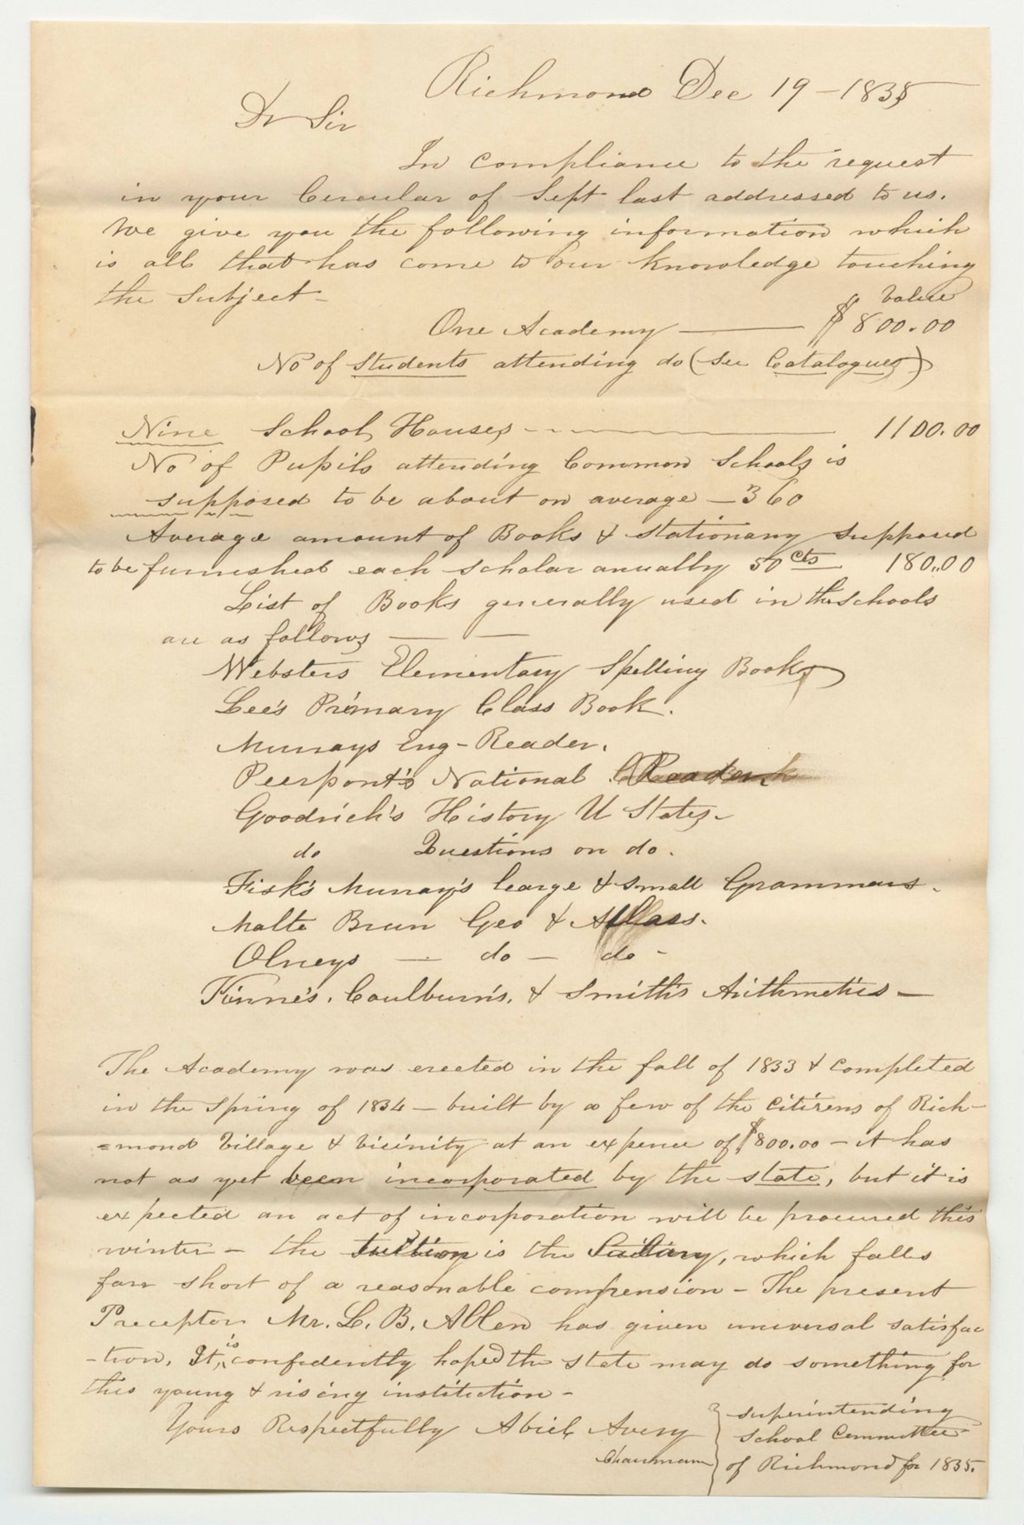 Richmond Dec 19 - 1835
Dr Sir
In compliance to the request
in your Circular of Sept last addressed to us.
We give you the following information which
is all that has come to our knowledge touching
the Subject -
Value
One Academy — $800.00
No of Students attending do (See Catalogues)
Nine School Houses - - - — 1100.00
No of Pupils attending Common Schools is
supposed to be about on average - 360
Average amount of Books & Stationary supposed
to be furnished each scholar anually 50 cts 180.00
List of Books generally used in the Schools
are as follows — —
Websters Elementary Spelling Book
Lee's Primary Class Book.
Murrays Eng - Reader.
Peerpont's National Reader
Goodrich's History U States -
do Questions on do.
Fisk's Murray's Large & Small Grammars.
Malte Brun Geo & Atlass.
Olneys — do — do -
Finne's, Coulburn's, & Smith's Arithmetics —
The Academy was erected in the fall of 1833 & completed
in the Spring of 1834 - built by a few of the Citizens of Rich-
=mond Village & Vicinity at an expence of $800.00 - it has
not as yet been incorporated by the state, but it is
expected an act of incorporation will be procured this
winter - the tuition is the , which falls
farr short of a reasonable compension - The present
Preceptor Mr. L. B. Allen has given universal satisfac
-tion. It is confidently hoped the State may do something for
this young & rising institution -
Yours Respectfully Abiel Avery
Chairman
superintending
School Committee
of Richmond for 1835.